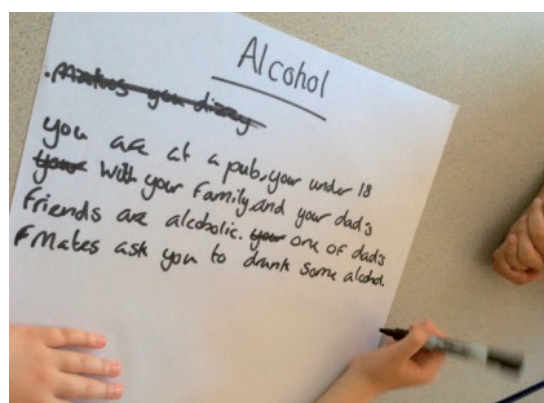 Alcohol
. Makes you dizzy
you are at a pub, your under 18
your with your family and your dad's
friends are alcoholic. your one of dad's
Mates ask you to drunk some alcohol.